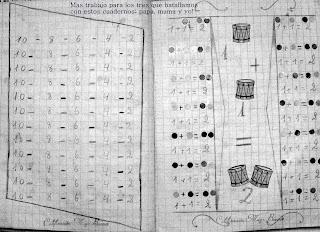 Mas trabajo para los tres que batallamos
con estos cuadernos: papa, mama y yo!!"
10 - 8 - 6 - 4 - 2
10 - 8 - 6 - 4 - 2
10 - 8 - 6 - 4 - 2
10 - 8 - 6 - 4 - 2
10 - 8 - 6 - 4 - 2
10 - 8 - 6 - 4 - 2
10 - 8 - 6 - 4 - 2
10 - 8 - 6 - 4 - 2
10 - 8 - 6 - 4 - 2
10 - 8 - 6 - 4 - 2
10 - 8 - 6 - 4 - 2
10 - 8 - 6 - 4 - 2
Calificación Muy
1+1=2
1+1=2
1+1=2
1+1=2
1+1=2
1+1=2
1+1=2
1+1=2
1
+
1
=
2
1+1=2
1+1=2
1+1=2
1+1=2
1+1=2
1+1=2
1+1=2
1+1=2
Calificación Muy